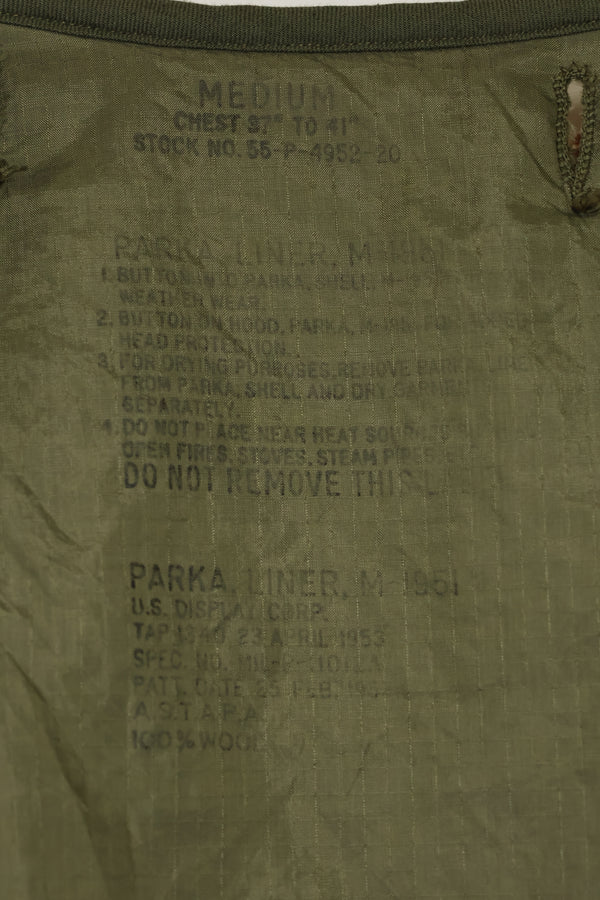 MEDIUM
CHEST 37" TO 41"
STOCK NO. 55-P-4952-20
PARKA, LINER, M-1951
1. BUTTON INTO PARKA, SHELL,
WEATHER WEAR.
2. BUTTON ON HOOD, PARKA, M-1951 FOR
HEAD PROTECTION.
3. FOR DRYING PURPOSES, REMOVE PARKA, LINER
FROM PARKA, SHELL AND DRY GARMENTS
SEPARATELY.
4. DO NOT PLACE NEAR HEAT SOURCES
OPEN FIRES, STOVES, STEAM PIPES
DO NOT REMOVE THIS LABEL
PARKA, LINER, M-1951
U.S. DISPLAY CORP.
TAP 1340, 23 APRIL 1953
SPEC. NO.
PATT. DATE 25 FEB. 
A.S.T.A.P.A.
100% WOOL